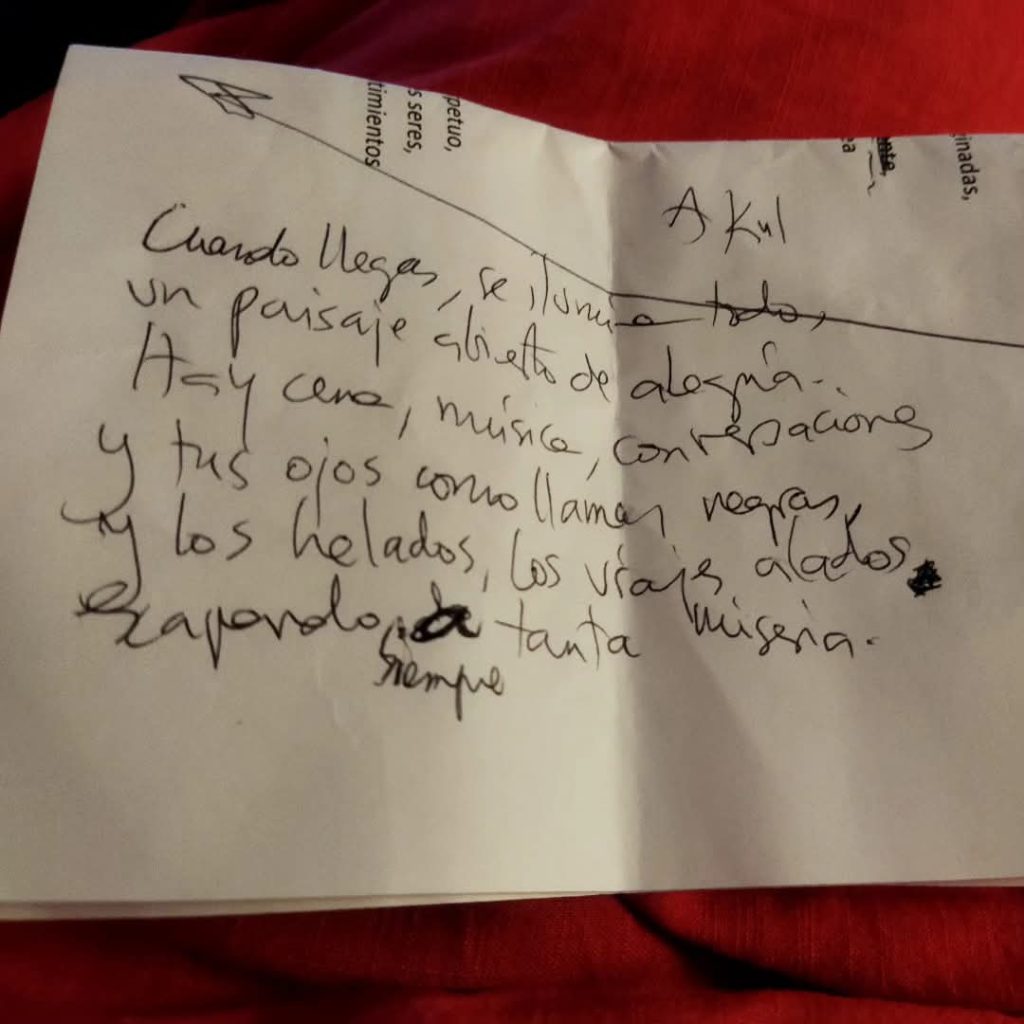 petuo,
s seres,
timientos
ginadas,
ente,
ea
A Kul
Cuando llegas, se ilumina todo,
un paisaje abierto de alegría..
Hay cena, música, conversaciones
y tus ojos como llamas negras,
y los helados, los viajes alados
escapando, a tanta miseria.
siempre